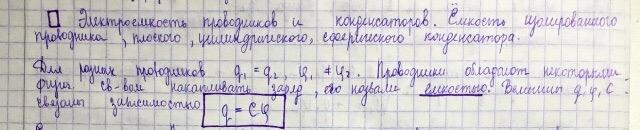 Электроемкость проводников и конденсаторов. Ёмкость изолированного
проводника, плоского, цилиндрического, сферического конденсатора.
Для разных проводников q₁ = q₂, φ₁ ≠ φ₂. Проводники обладают некоторым
физич св-вом накапливать заряд, его назвали емкостью. Величины q, φ, C
связаны зависимостью q = Cφ